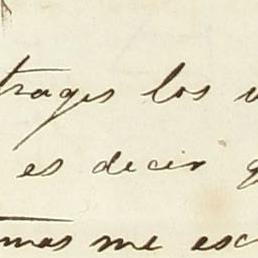 trages los
es decir
mas me esc